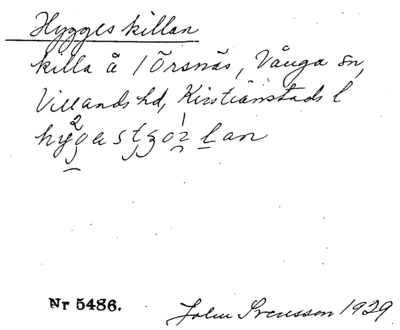 Hyggeskillan
killa å / Örsnäs, Vånga sn,
Villands hd, Kristianstads l
Nr 5486.
John Svensson 1929